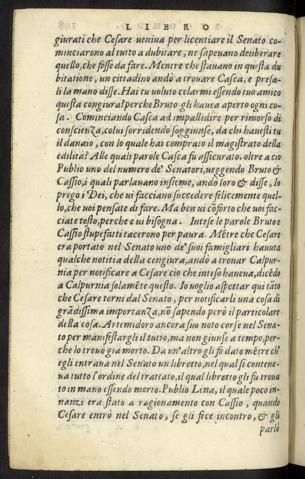 LIBRO
giurati che Cesare ueniua per licentiare il Senato co-
minciarono al tutto a dubitare, ne sapeuano deliberare
quello, che fosse da fare. Mentre che stauano in questa du
bitatione, un cittadino andò a trouare Casca, e presa-
li la mano disse. Hai tu uoluto celarmi essendo tuo amico
questa congiura? perche Bruto gli haueа aperto ogni co-
sa. Cominciando Casca ad impallidire per rimorso di
conscienza, colui sorridendo soggiunse, da chi hauesti tu
il danaio, con lo quale hai comprato il magistrato della
edilità? Alle quali parole Casca fu assicurato. oltre a ciò
Publio uno del numero de' Senatori, ueggendo Bruto &
Cassio, i quali parlauano insieme, andò loro & disse, Io
prego i Dei, che ui facciano succedere felicemente quel-
lo, che uoi pensate di fare. Ma ben ui cõforto che uoi fac-
ciate tosto, perche ui bisogna. Intese le parole Bruto e
Cassio stupefatti tacerono per paura. Mẽtre che Cesare
era portato nel Senato uno de' suoi famigliari hauuta
qualche notitia della congiura, andò a trouar Calpur-
nia per notificare a Cesare ciò che inteso haueua, dicẽdo
a Calpurnia solamẽte questo. Io uoglio aspettar quì tãto
che Cesare torni dal Senato, per notificarli una cosa di
grãdissima importanza, nõ sapendo però il particolare
della cosa. Artemidoro ancora suo noto corse nel Sena-
to per manifestargli il tutto, ma non giunse a tempo, per-
che lo trouò già morto. Da un'altro gli fù dato mẽtre ch'
egli entraua nel Senato un libretto, nel qual si contene-
ua tutto l'ordine del trattato, il qual libretto gli fu troua
to in mano essendo morto. Publio Lena, il quale poco in-
nanzi era stato a ragionamento con Cassio, quando
Cesare entrò nel Senato, se gli fece incontro, & gli
parlò